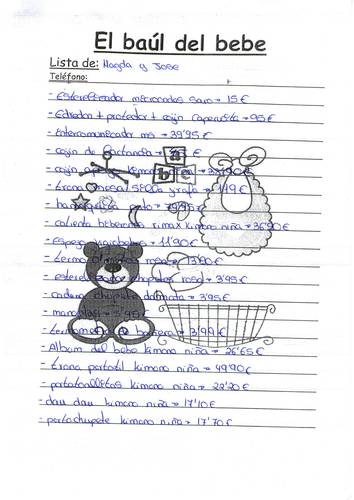 El baúl del bebe
Lista de: Magda y Jose
Teléfono:
- Esterelizador microondas saro → 15 €
- Edredon + protector + cojin caperucita → 95 €
- Intercomunicador → 39'95 €
- cojin de lactancia →
- cojin kimono
- trona mesal stella grafa → 119 €
- pato → 29'95 €
- calienta biberones rimax kimono niña → 36'90 €
- espejo → 11'90 €
- termo rosa → 13'90 €
- esterelizador chupetes rosa → 3'95 €
- cadena chupete dalmata → 3'95 €
- → 5'95 €
- termometro de bañera → 3'99 €
- Album del bebe kimono niña → 26'65 €
- trona portatil kimono niña → 49'90 €
- portatoallitas kimono niña → 22'20 €
- dou dou kimono niña → 17'10 €
- portachupete kimono niña → 17'70 €
a
b e